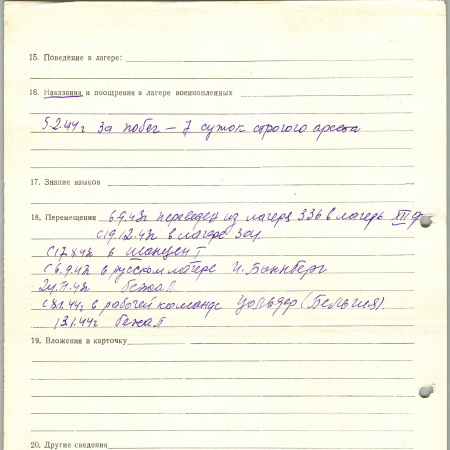 15. Поведение в лагере:
16. Наказания и поощрения в лагере военнопленных
5.2.44г за побег – 7 суток строгого ареста
17. Знание языков
18. Перемещения 6.9.43г переведен из лагеря 336 в лагерь XII ф
с 19.12.42г в лагере 304
с 17.8.42г в
с 6.9.42г в русском лагере
24.11.42г бежал
с 8.1.44г в рабочей команде (Бельгия).
13.1.44г бежал
19. Вложения в карточку
20. Другие сведения